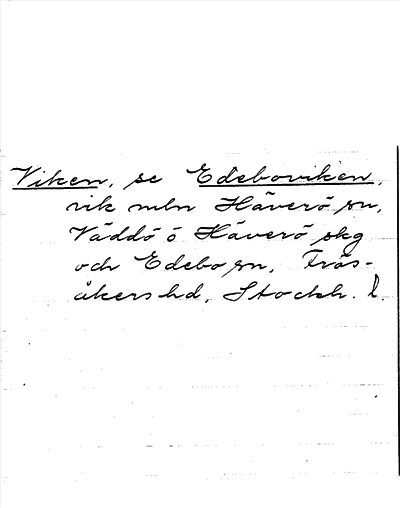 Viken, se Edeboviken,
vik mln Häverö sn,
Väddö o Häverö skg
och Edebo sn, Frös-
åkers hd, Stockh. l.